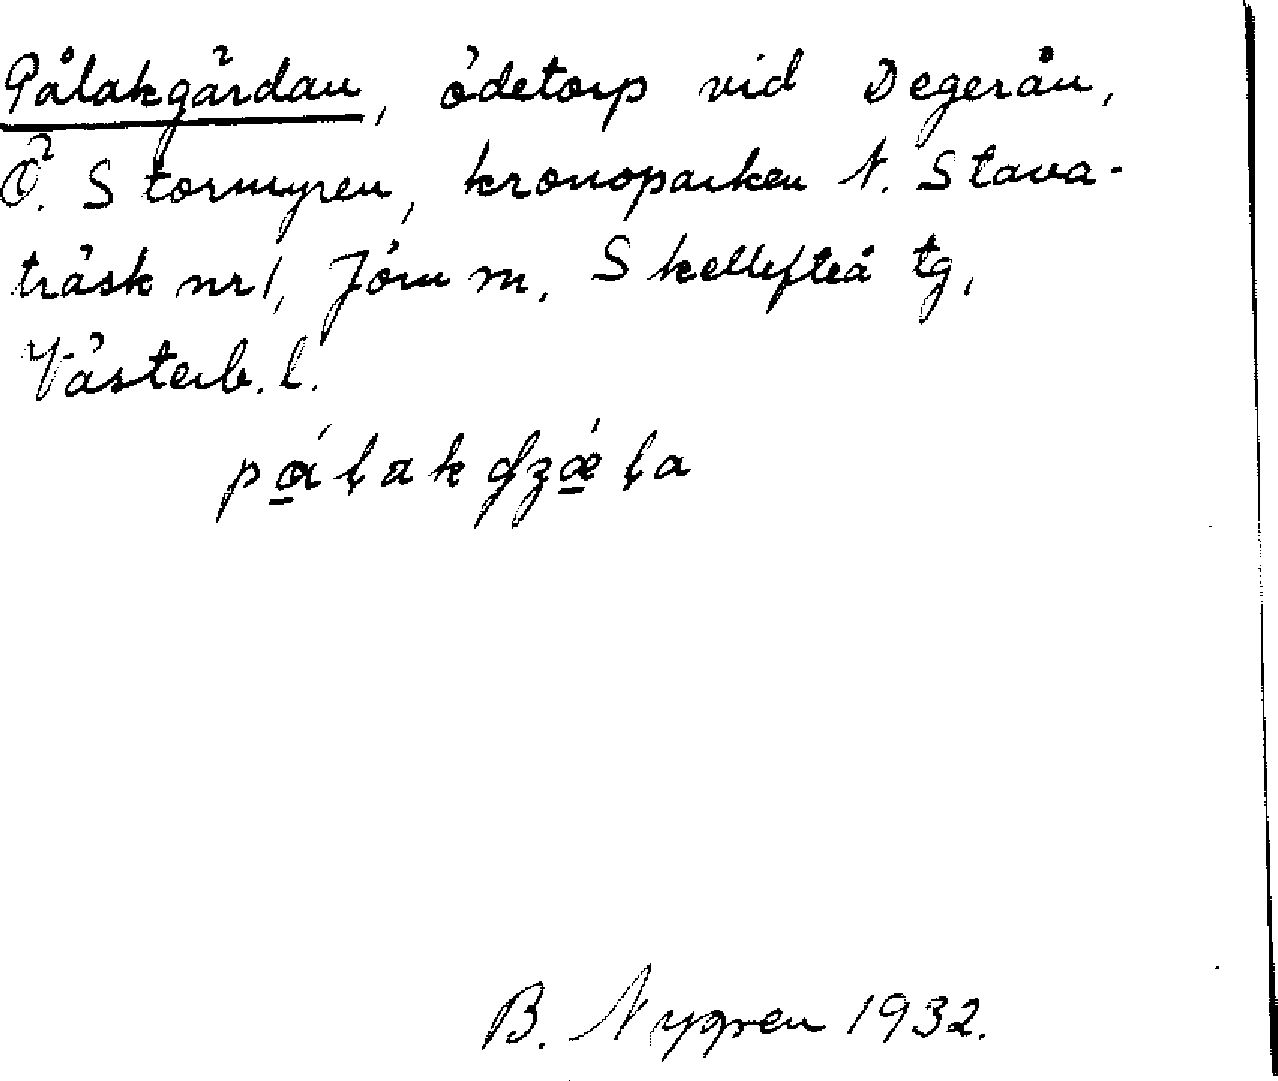 Pålakgärdan, ödetorp vid Degerån,
Ö. Stormyren, kronoparken N. Stava-
träsk nr 1, Jörn m, Skellefteå tg,
Västerb. l.
B. Nygren 1932.